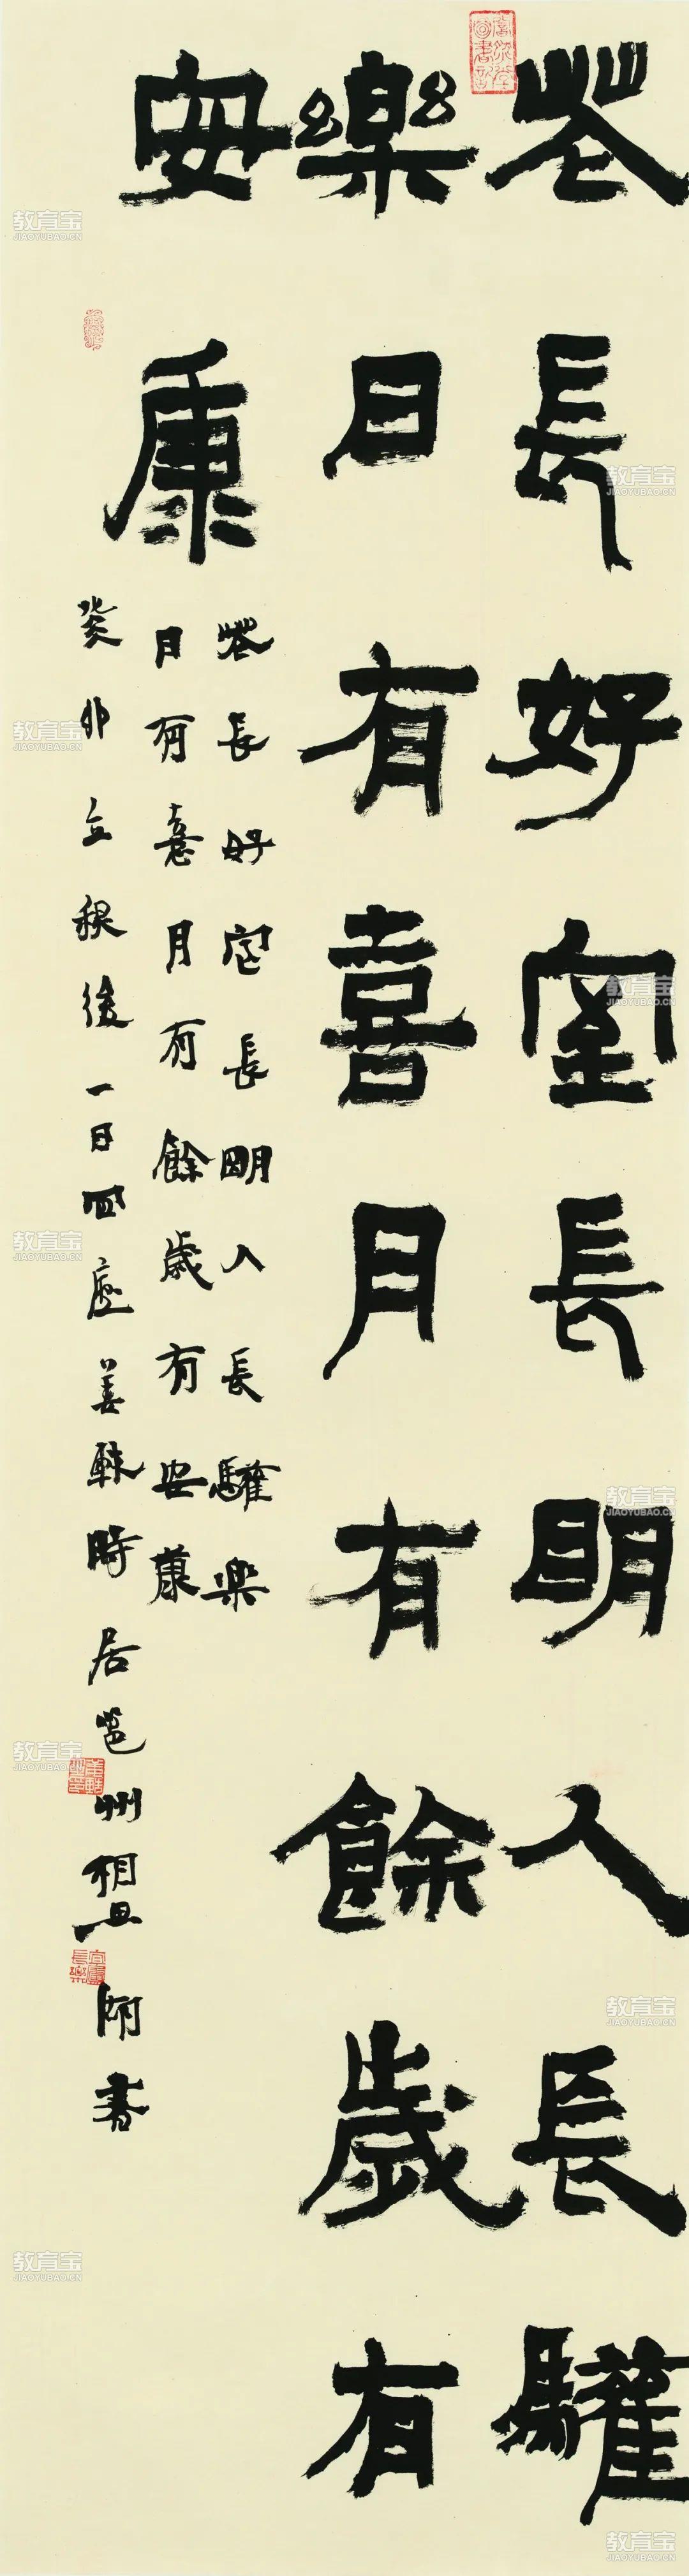 花長好室長明人長驩
樂日有喜月有餘歲有
安康
花長好室長明人長驩樂
日有憙月有餘歲有安康
癸卯立秋後一日 姜軼時居邕州相思湖書
教育宝
JIAOYUBAO.CN